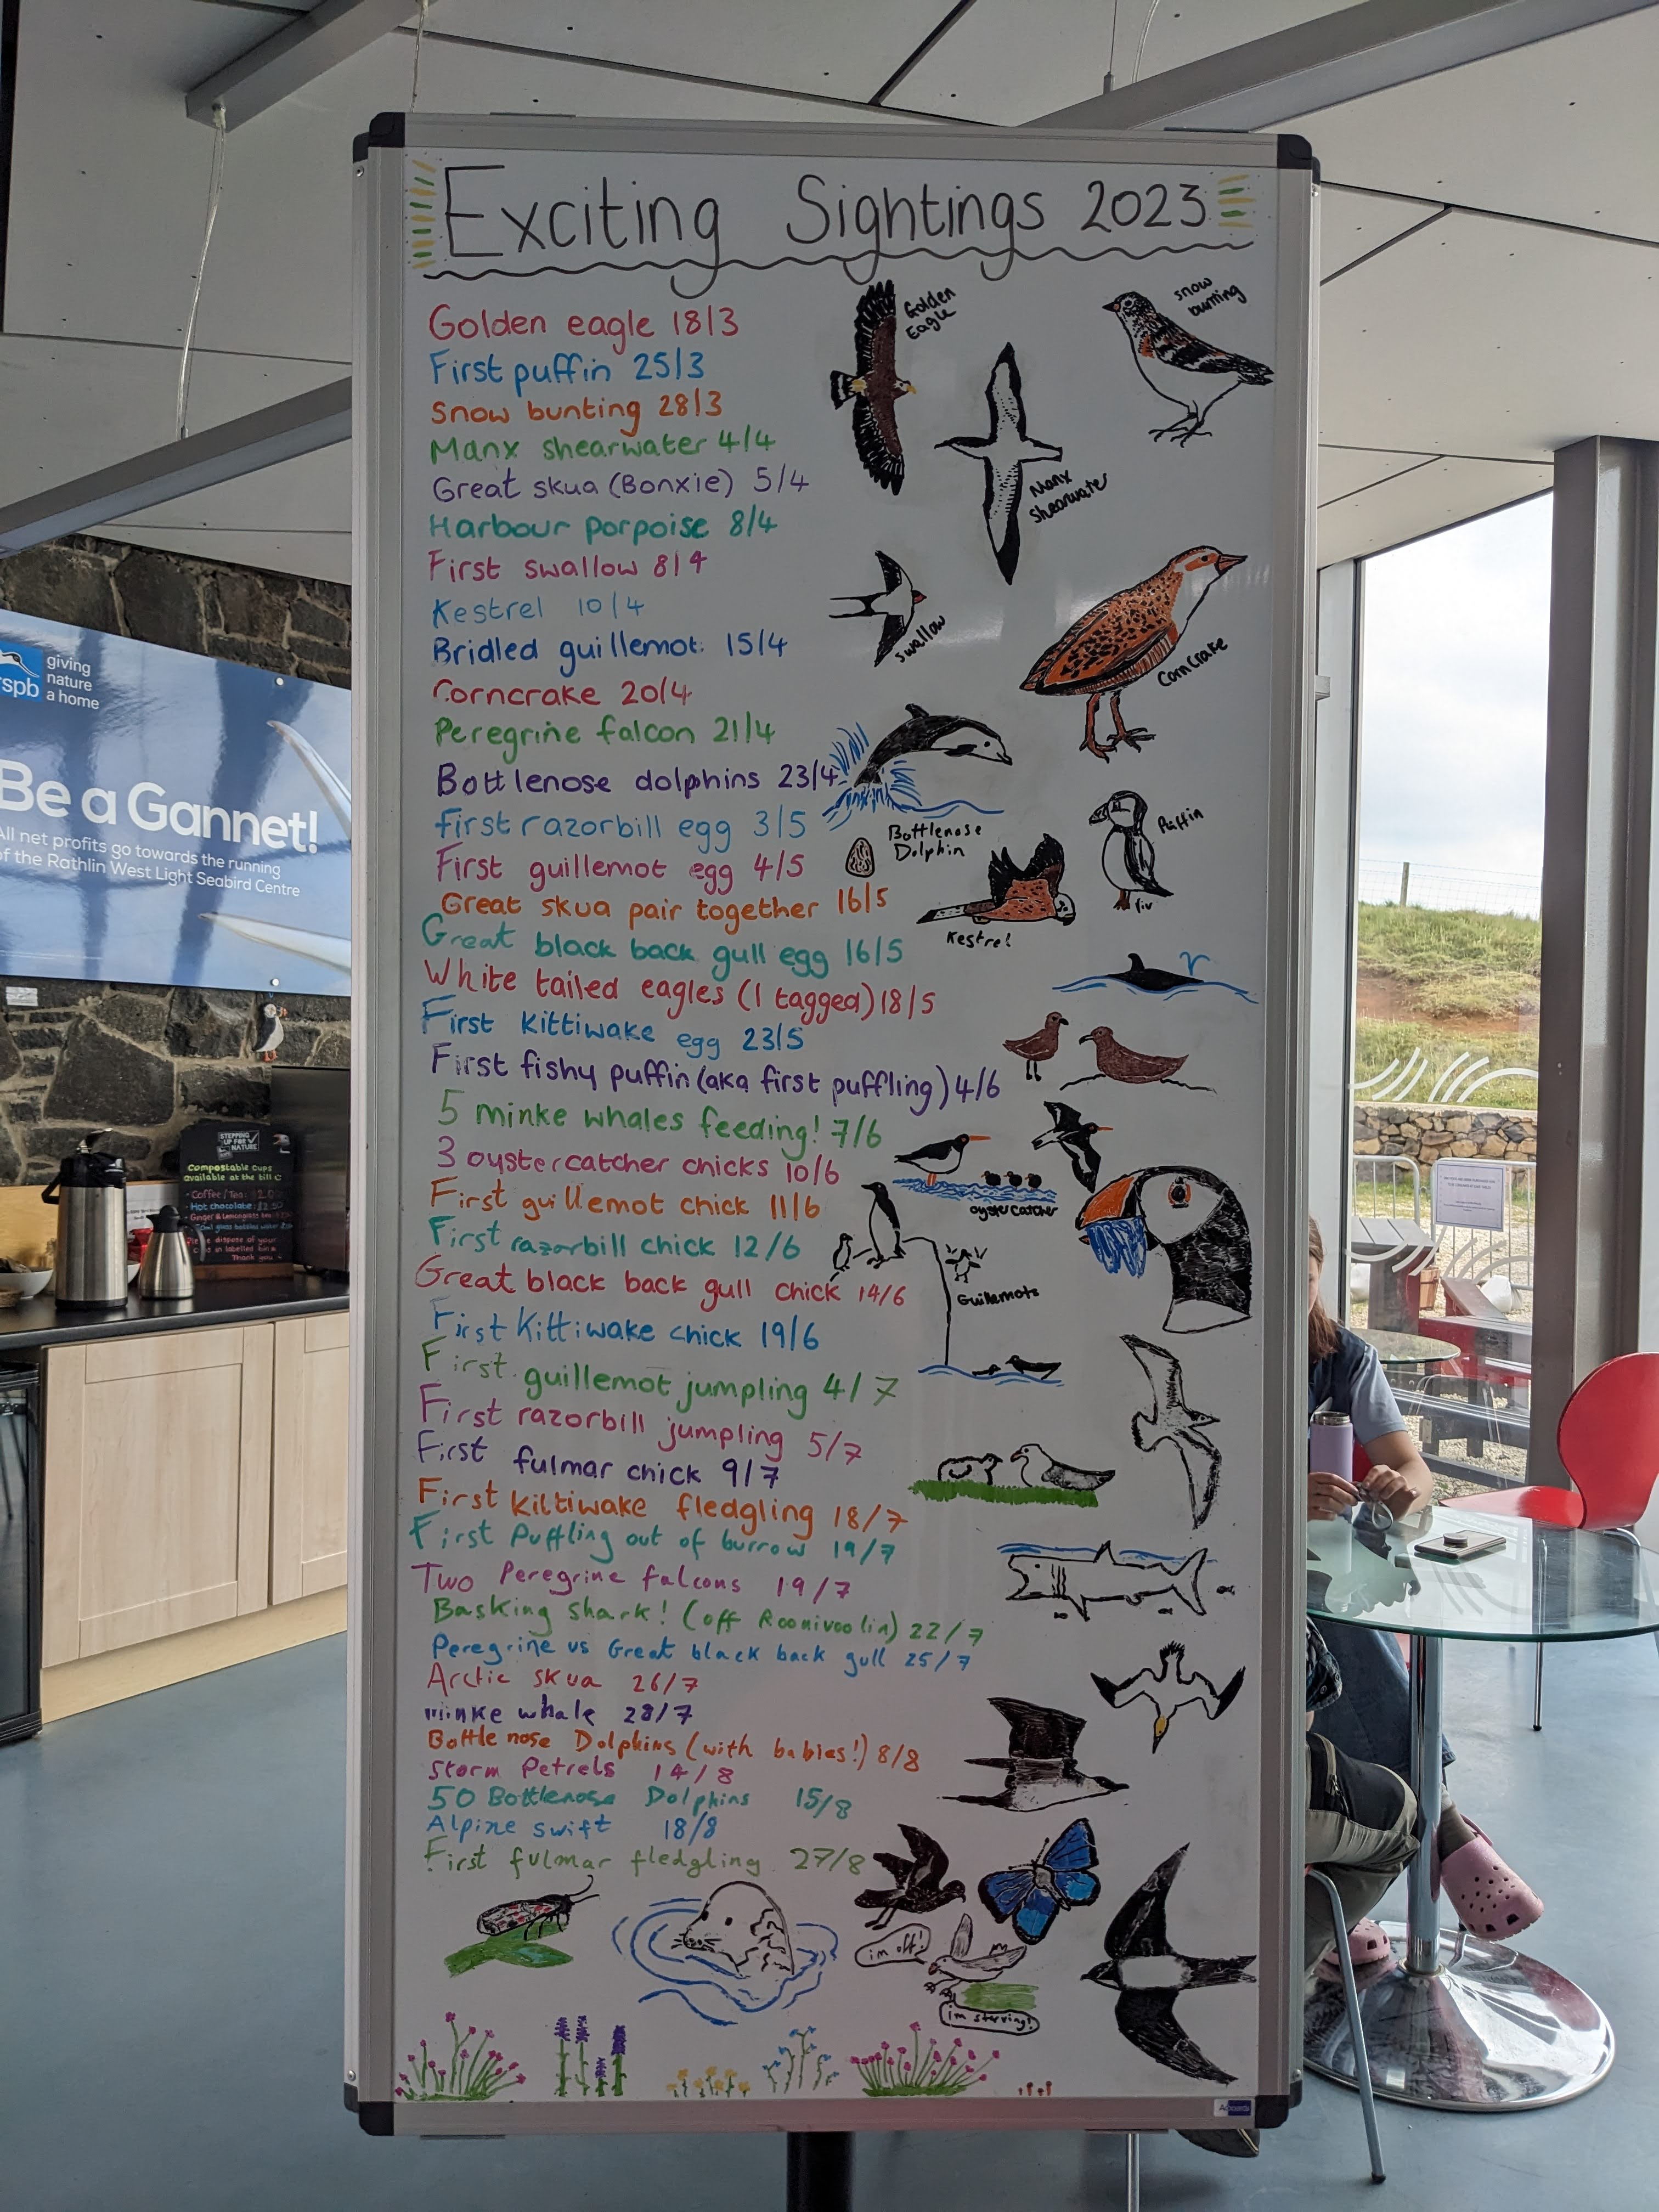 Exciting Sightings 2023
Golden eagle 18/3
First puffin 25/3
Snow bunting 28/3
Manx shearwater 4/4
Great skua (Bonxie) 5/4
Harbour porpoise 8/4
First swallow 8/4
Kestrel 10/4
Bridled guillemot 15/4
Corncrake 20/4
Peregrine falcon 21/4
Bottlenose dolphins 23/4
first razorbill egg 3/5
First guillemot egg 4/5
Great skua pair together 16/5
Great black back gull egg 16/5
White tailed eagles (1 tagged) 18/5
First Kittiwake egg 23/5
First fishy puffin (aka first puffling) 4/6
5 minke whales feeding! 7/6
3 oystercatcher chicks 10/6
First guillemot chick 11/6
First razorbill chick 12/6
Great black back gull chick 14/6
First Kittiwake chick 19/6
First guillemot jumpling 4/7
First razorbill jumpling 5/7
First fulmar chick 9/7
First kittiwake fledgling 18/7
First Puffling out of burrow 19/7
Two Peregrine falcons 19/7
Basking Shark! (off Roonivoolin) 22/7
Peregrine vs Great black back gull 25/7
Arctic skua 26/7
minke whale 28/7
Bottle nose Dolphins (with babies!) 8/8
Storm Petrels 14/8
50 Bottlenose Dolphins 15/8
Alpine swift 18/8
First fulmar fledgling 27/8
Golden Eagle
snow bunting
Manx Shearwater
swallow
Corncrake
Bottlenose Dolphin
Puffin
Kestrel
oyster catcher
Guillemots
im off!
im starving!
rspb
giving
nature
a home
Be a Gannet!
All net profits go towards the running
of the Rathlin West Light Seabird Centre
STEPPING
UP FOR
NATURE
Compostable cups
available at the till
Coffee/Tea:
Hot chocolate:
Ginger & Lemongrass tea
Please dispose of your
in labelled bins
Thank you